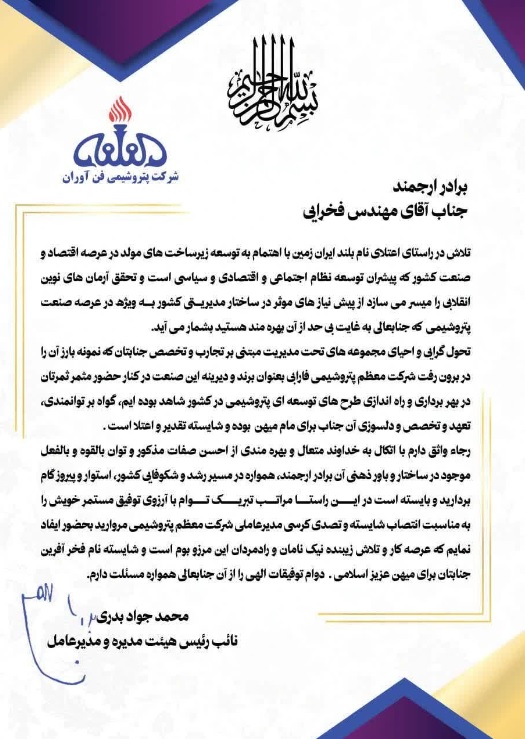 بسم الله الرحمن الرحیم
شرکت پتروشیمی فن آوران
برادر ارجمند
جناب آقای مهندس فخرایی
تلاش در راستای اعتلای نام بلند ایران زمین با اهتمام به توسعه زیرساخت های مولد در عرصه اقتصاد و
صنعت کشور که پیشران توسعه نظام اجتماعی و اقتصادی و سیاسی است و تحقق آرمان های نوین
انقلابی را میسر می سازد از پیش نیاز های موثر در ساختار مدیریتی کشور به ویژه در عرصه صنعت
پتروشیمی که جنابعالی به غایت بی حد از آن بهره مند هستید بشمار می آید.
تحول گرایی و احیای مجموعه های تحت مدیریت مبتنی بر تجارب و تخصص جنابتان که نمونه بارز آن را
در برون رفت شرکت معظم پتروشیمی فارابی بعنوان برند و دیرینه این صنعت در کنار حضور مثمر ثمرتان
در بهر برداری و راه اندازی طرح های توسعه ای پتروشیمی در کشور شاهد بوده ایم، گواه بر توانمندی،
تعهد و تخصص و دلسوزی آن جناب برای مام میهن بوده و شایسته تقدیر و اعتلا است .
رجاء واثق دارم با اتکال به خداوند متعال و بهره مندی از احسن صفات مذکور و توان بالقوه و بالفعل
موجود در ساختار و باور ذهنی آن برادر ارجمند، همواره در مسیر رشد و شکوفایی کشور، استوار و پیروز گام
بردارید و بایسته است در این راستا مراتب تبریک توام با آرزوی توفیق مستمر خویش را
به مناسبت انتصاب شایسته و تصدی کرسی مدیرعاملی شرکت معظم پتروشیمی مروارید بحضور ایفاد
نمایم که عرصه کار و تلاش زیبنده نیک نامان و رادمردان این مرزو بوم است و شایسته نام فخر آفرین
جنابتان برای میهن عزیز اسلامی . دوام توفیقات الهی را از آن جنابعالی همواره مسئلت دارم.
محمد جواد بدری
نائب رئیس هیئت مدیره و مدیرعامل